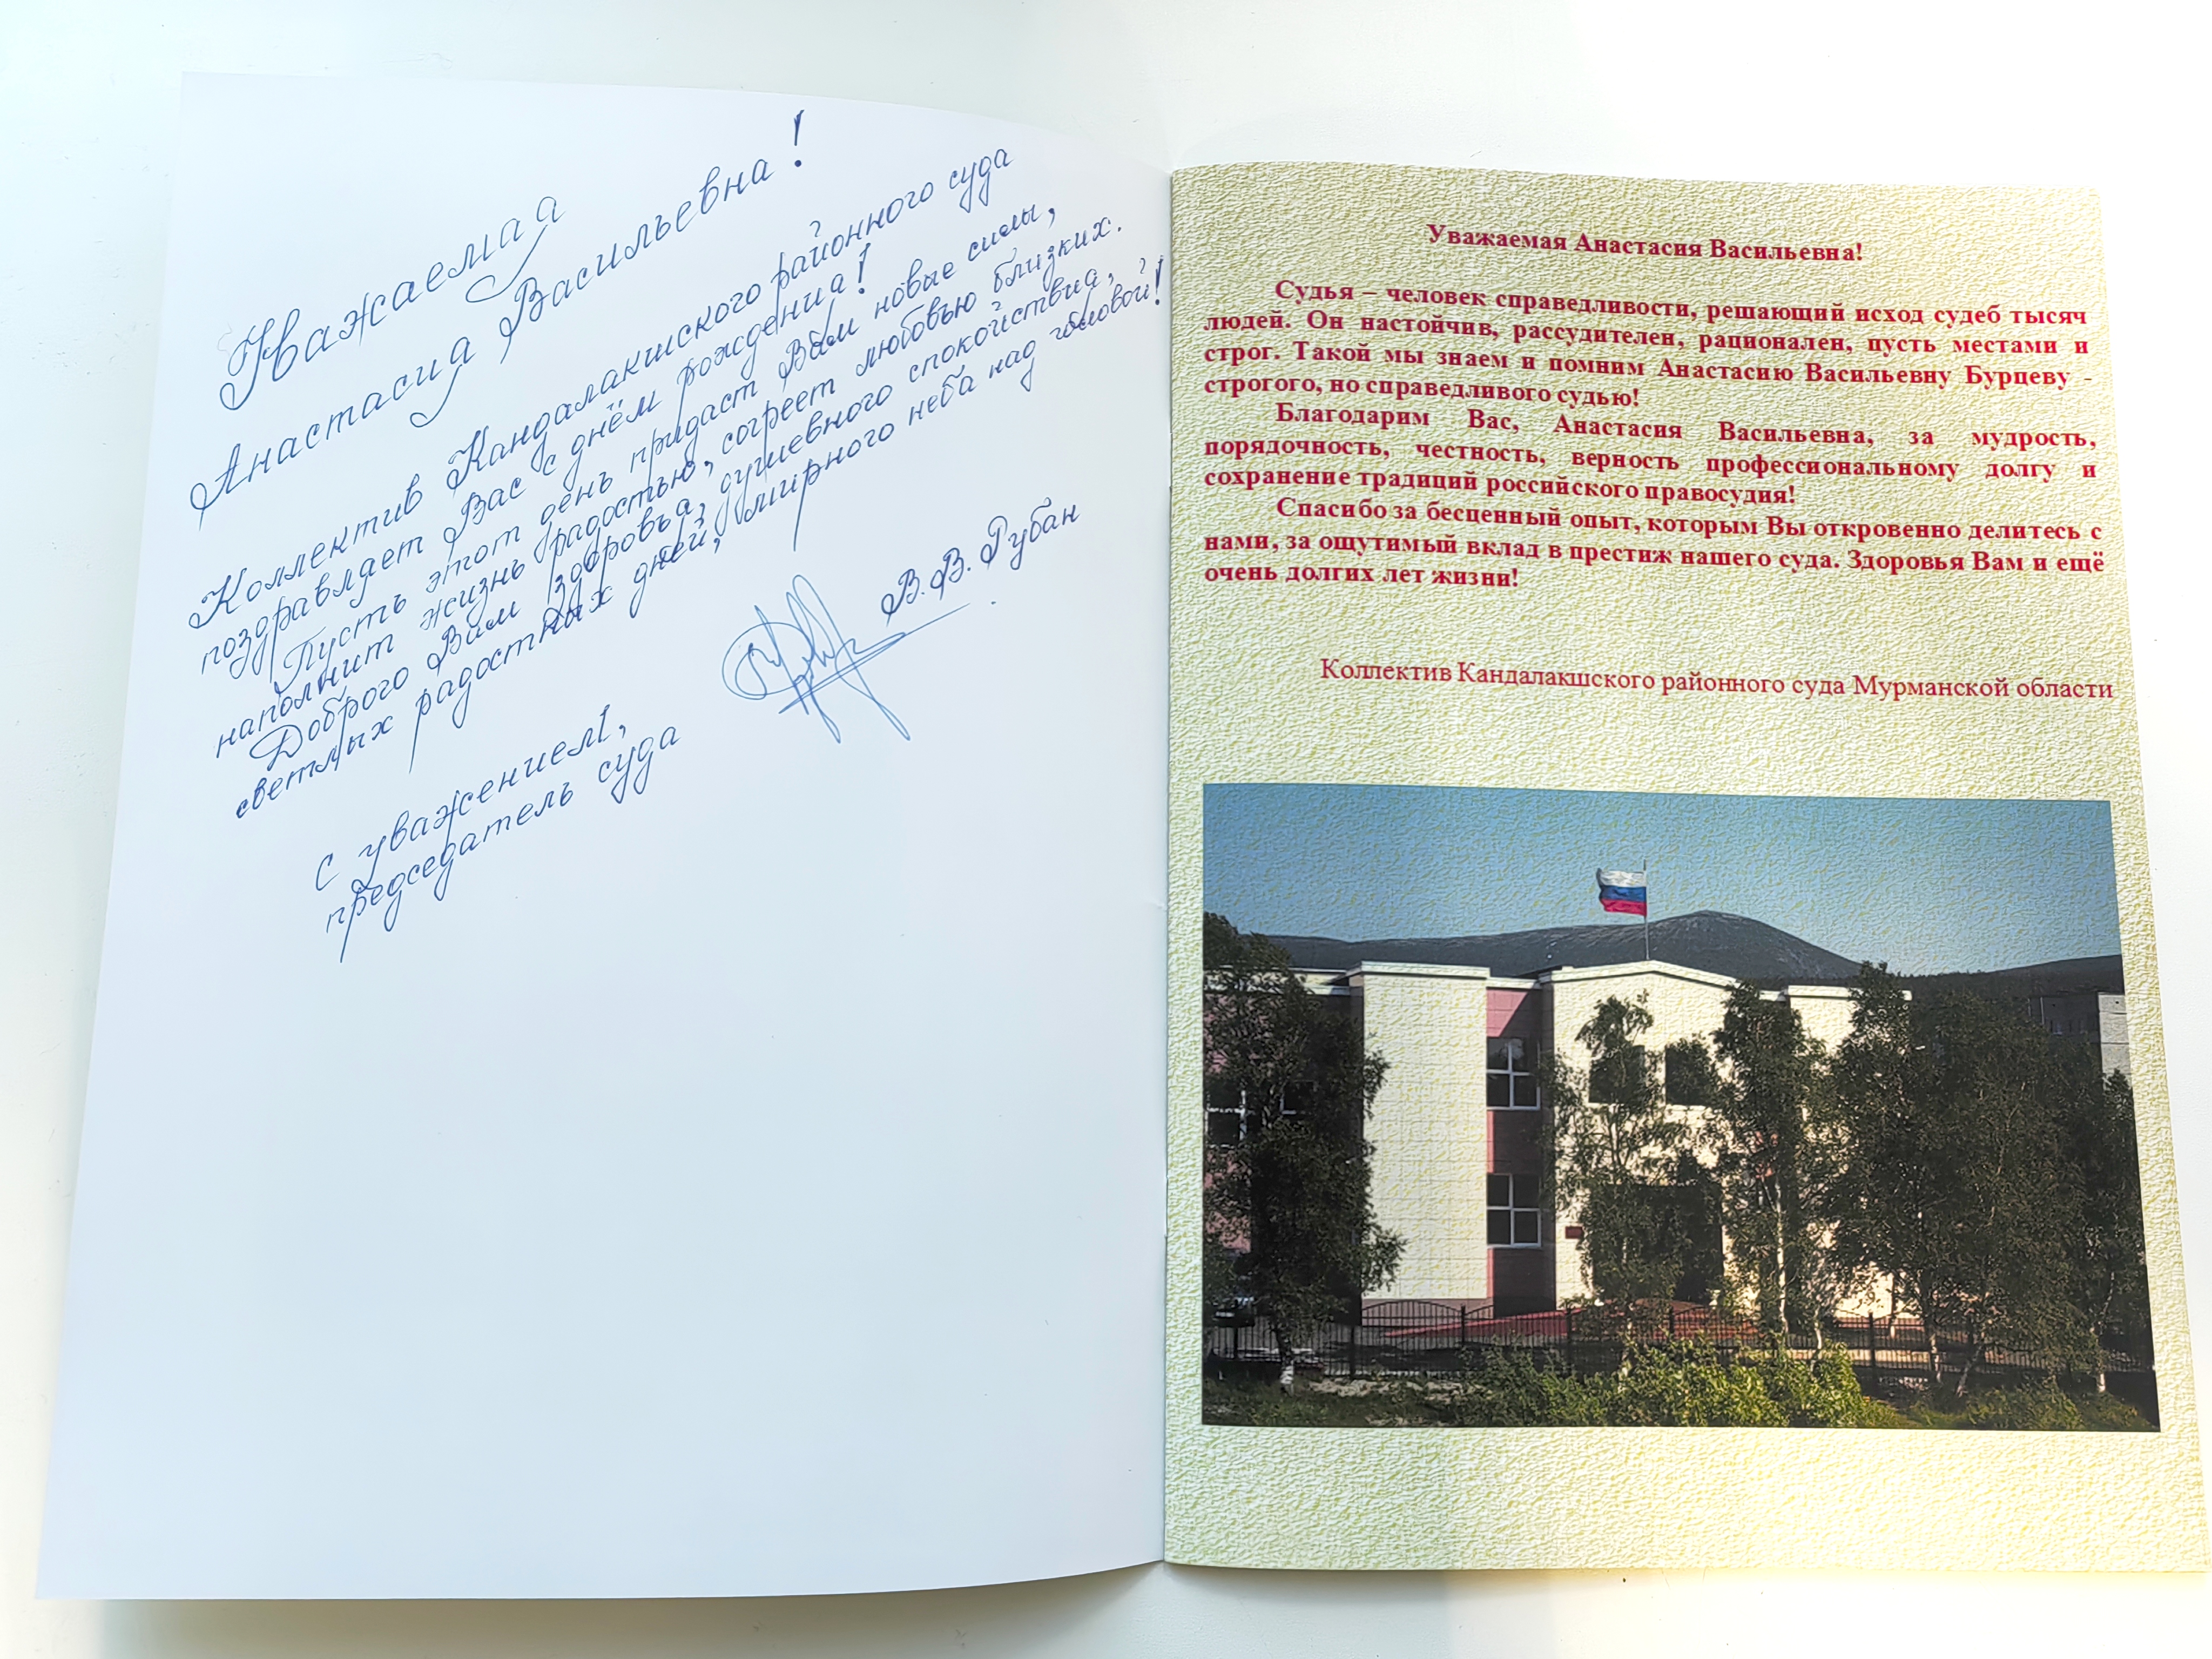 Уважаемая
Анастасия Васильевна!
Коллектив Кандалакшского районного суда
поздравляет Вас с днём рождения!
Пусть этот день придаст Вам новые силы,
наполнит жизнь радостью, согреет любовью близких.
Доброго Вам здоровья, душевного спокойствия,
светлых радостных дней, мирного неба над головой!
С уважением,
председатель суда
В.В. Рубан
Уважаемая Анастасия Васильевна!
Судья – человек справедливости, решающий исход судеб тысяч
людей. Он настойчив, рассудителен, рационален, пусть местами и
строг. Такой мы знаем и помним Анастасию Васильевну Бурцеву -
строгого, но справедливого судью!
Благодарим Вас, Анастасия Васильевна, за мудрость,
порядочность, честность, верность профессиональному долгу и
сохранение традиций российского правосудия!
Спасибо за бесценный опыт, которым Вы откровенно делитесь с
нами, за ощутимый вклад в престиж нашего суда. Здоровья Вам и ещё
очень долгих лет жизни!
Коллектив Кандалакшского районного суда Мурманской области